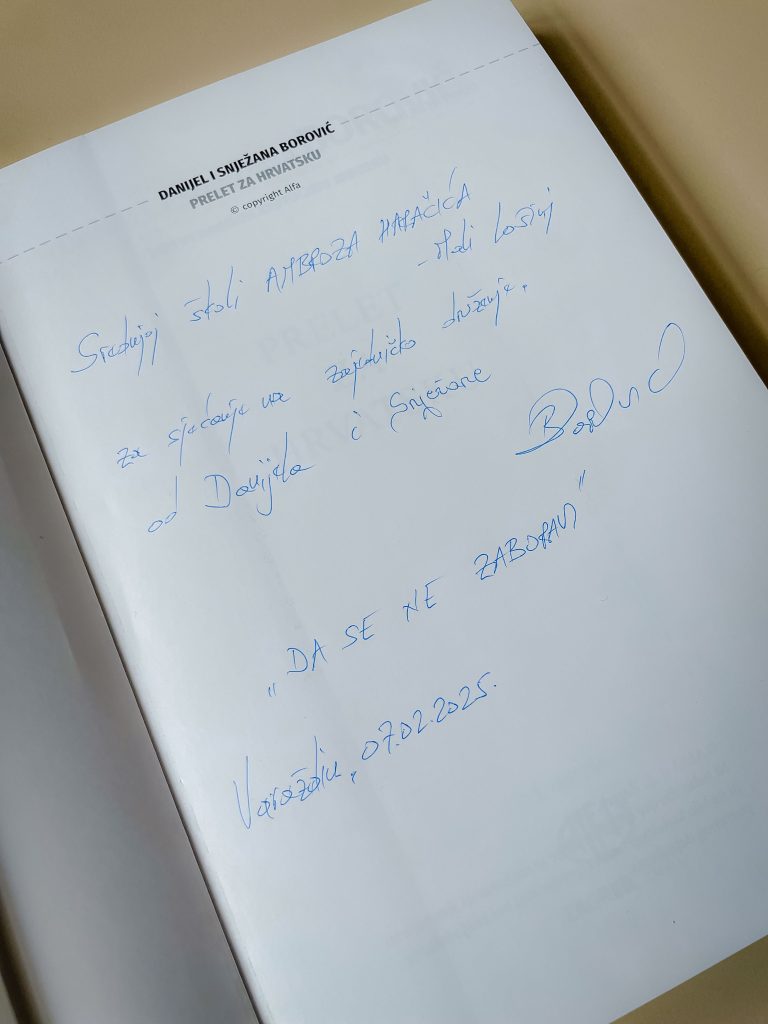 DANIJEL I SNJEŽANA BOROVIĆ
PRELET ZA HRVATSKU
© copyright Alfa
Srednjoj školi AMBROZA HARAČIĆA
- Mali Lošinj
za sjećanje na zajedničko druženje,
od Danijela i Snježane
Borović
„DA SE NE ZABORAVI"
Varaždin, 07.02.2025.